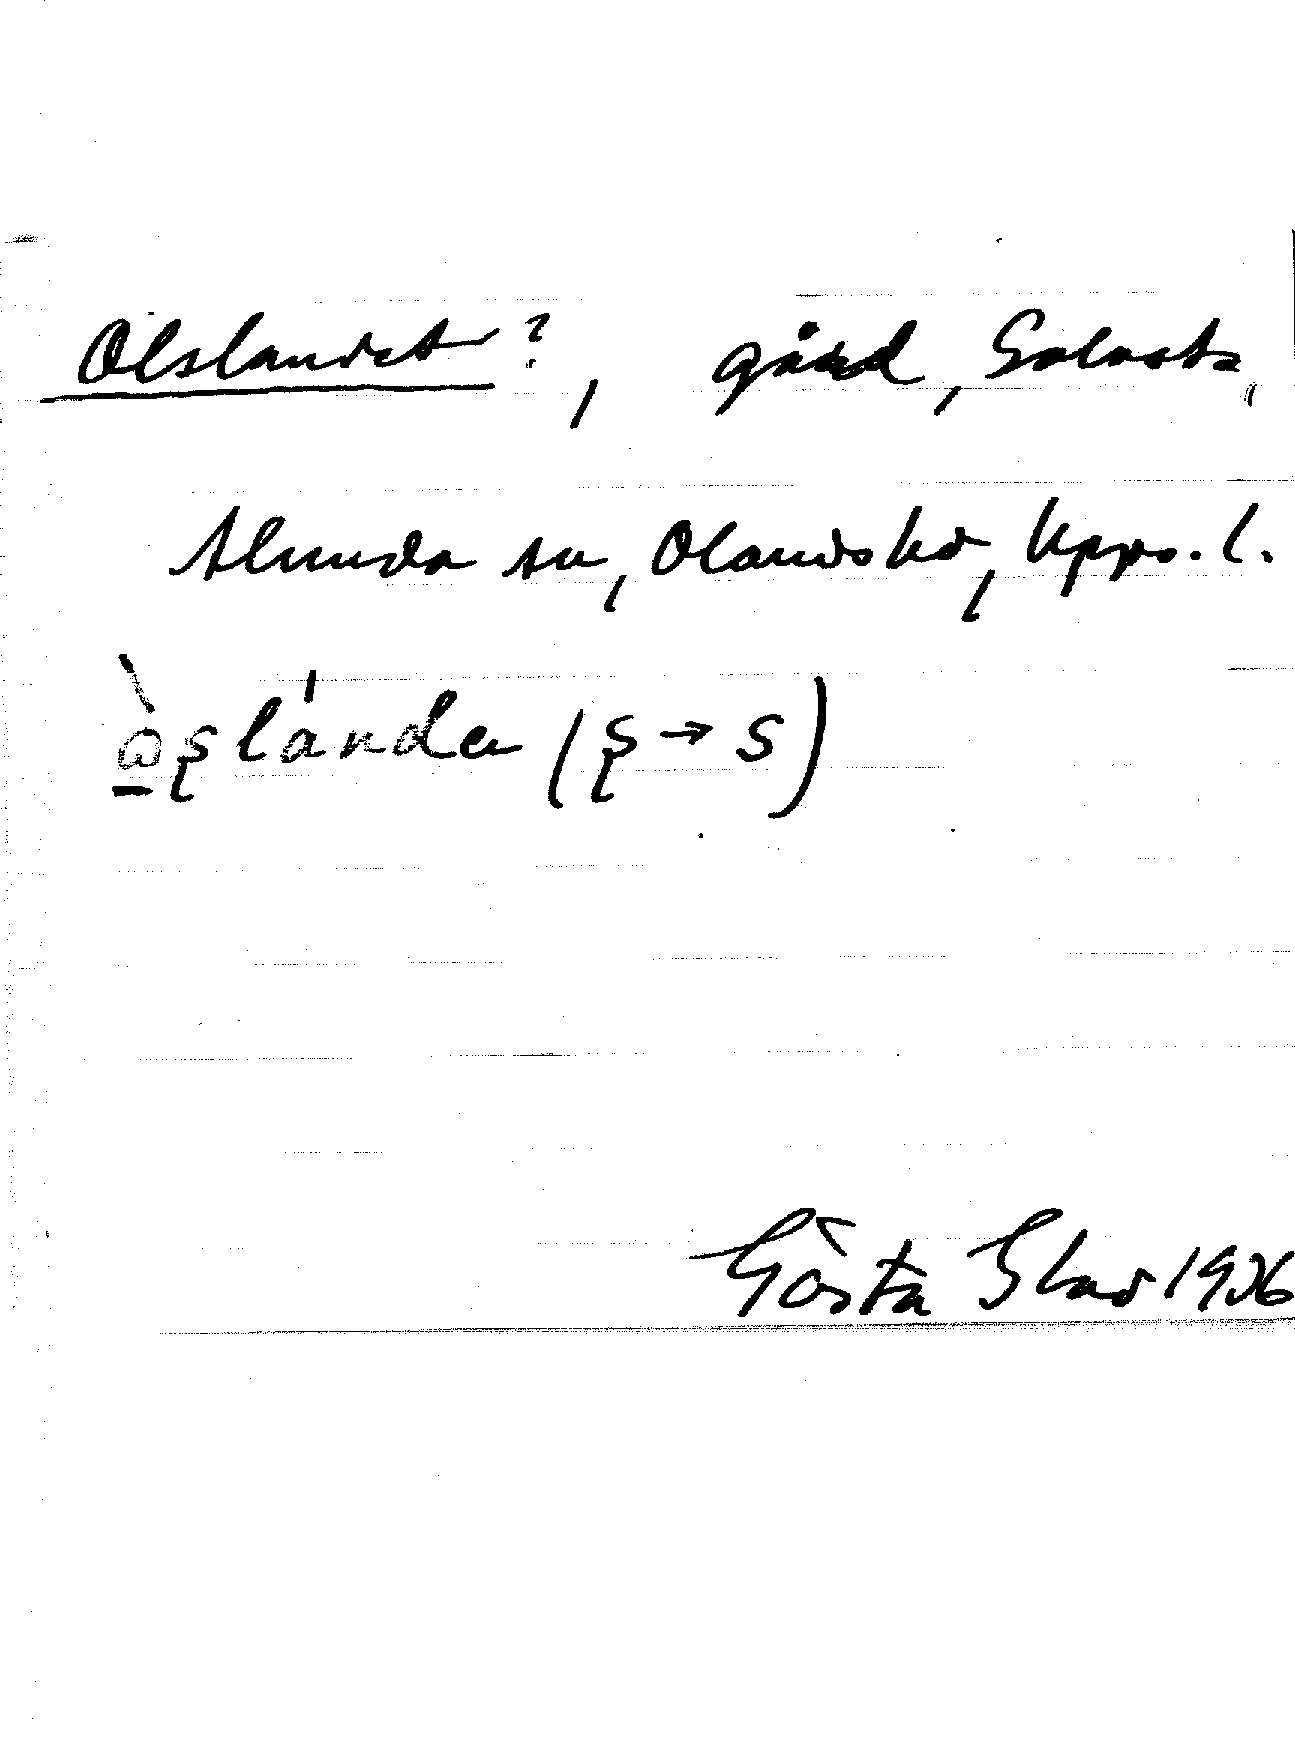 Olslandet?, gård, Golvasta,
Alunda sn, Olands hd, Upps. l.
ò̱ʂlánda (ʂ → s)
Gösta 1936